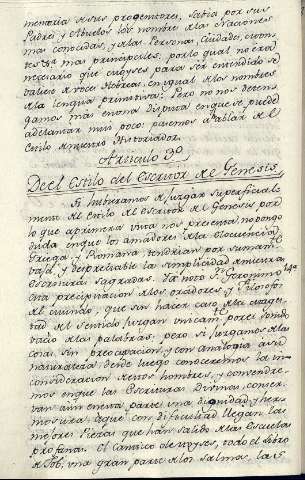 memoria de sus progenitores, sabia por sus
Padres y Abuelos los nombres de las Naciones
mas conocidas, y de las Personas, Ciudades, y mon-
tes mas principales, por lo qual no era
necesario que Moyses para ser entendido se
valiese de voces Hebreas, en igual de los nombres
de la lengua primitiva; Pero no nos deten-
gamos mas en una disputa en que se puede
adelantar mui poco: pasemos a hablar del
estilo de nuestro Historiador.
Articulo 9º
De el Estilo del Escritor de el Genesis
Si hubieramos de juzgar superficial-
mente del estilo del Escritor del Genesis por
lo que a primera vista nos presenta, no pongo
duda en que los amadores de la eloquencia
Griega, y Romana, tendrian por sumamte
baja, y despreciable la simplicidad de nuestras
escrituras sagradas. Ya noto Sn Geronimo
una precipitacion de los oradores, y Filosofos
del mundo, que sin hacer caso de la mages-
tad del sentido juzgan unicamte por el sonido
vacio de las palabras: pero si juzgamos de las
cosas sin preocupacion, y con analogia a su
naturaleza, desde luego conoceremos la in-
consideracion de estos hombres, y convendre-
mos en que las Escrituras Divinas, conser-
van aun en esta parte una dignidad y her-
mosura, a que con dificultad llegan las
mejores Piezas que han salido de las Escuelas
profanas. El Cantico de Moyses, todo el libro
de Job, una gran parte de los Salmos, la